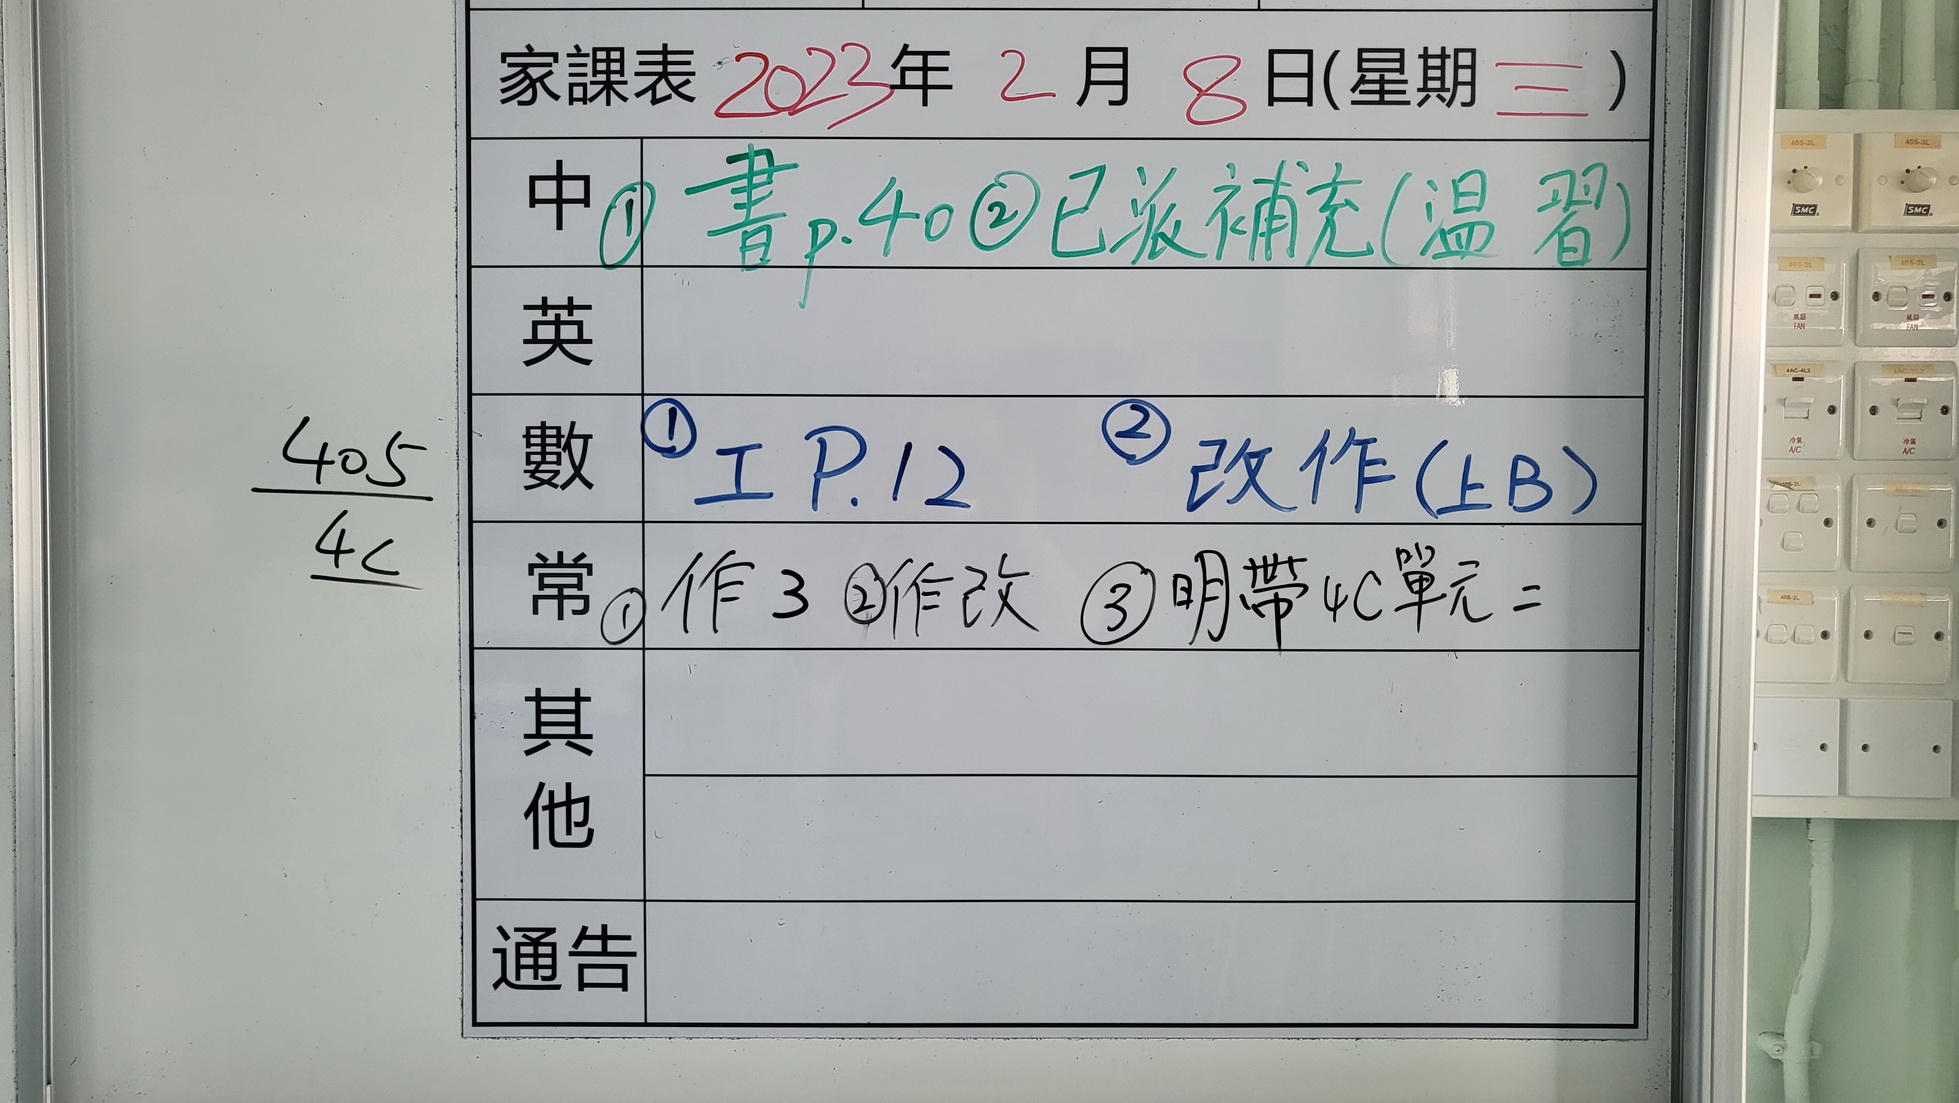 家課表 2023年 2月 8日(星期三)
中 ① 書p.40 ②已派補充(温習)
英
數 ①工 P.12 ②改作(上B)
常 ①作3 ②作改 ③明帶4C單元二
其他
通告
405
4C
405-2L 405-2L
SMC SMC
405-2L 405-2L
風扇 FAN 風扇 FAN
4AC-4L2
冷氣 A/C 冷氣 A/C
405-2L